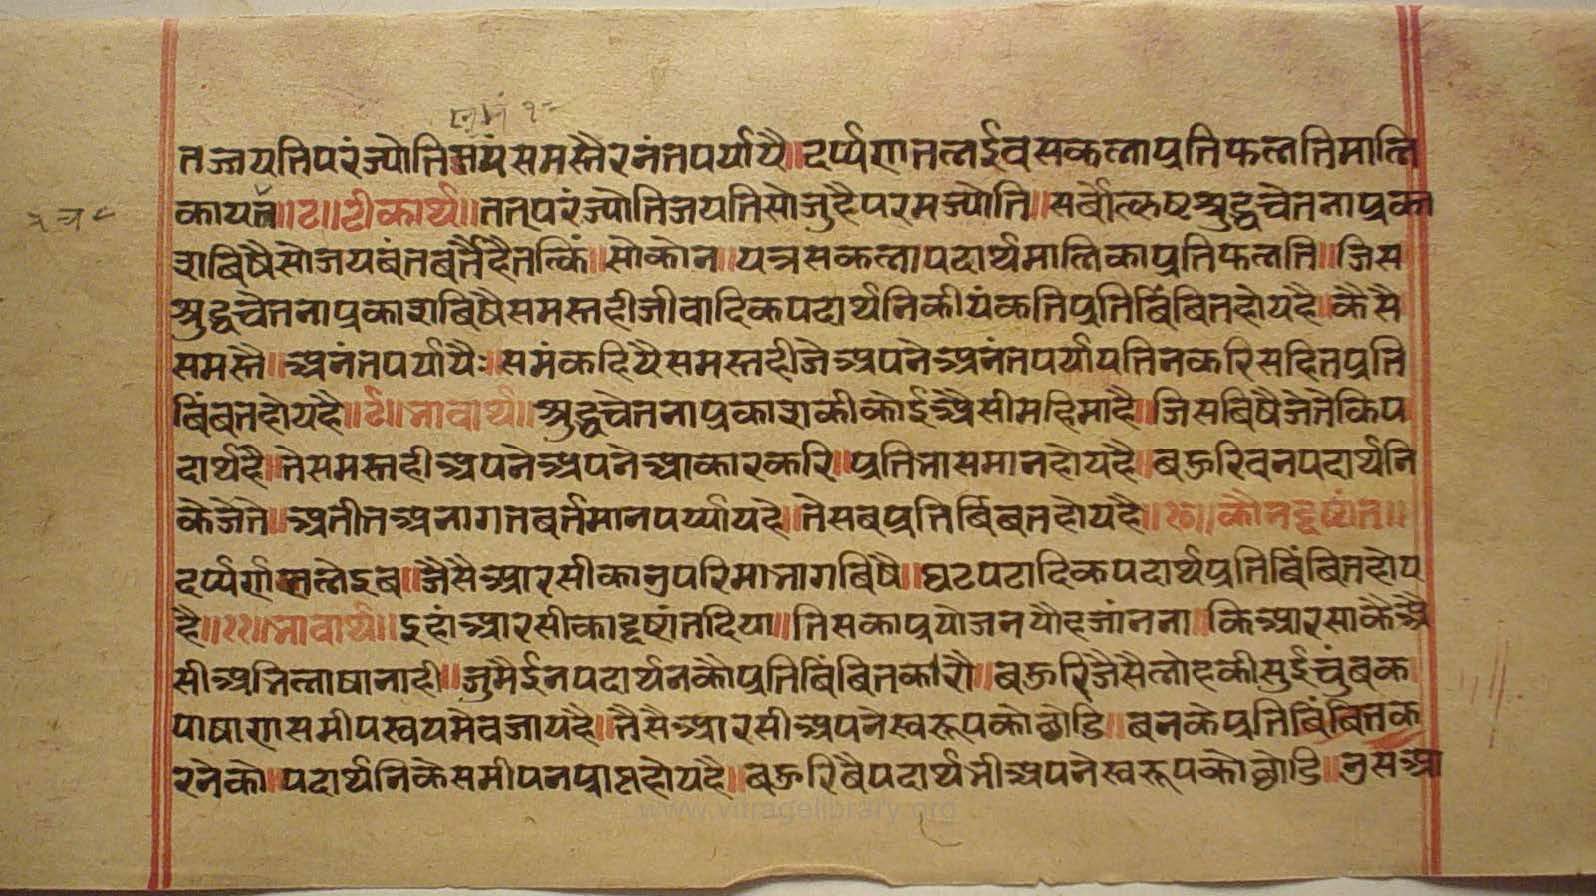 तज्जयतिपरंज्योतिसमंसमस्तैरनंतपर्यायै॥दर्प्पणतलईवसकलाप्रतिफलतिमालि
कायत्र॥८॥टीकार्थ॥तत्परंज्योतिजयतिसोजुहैपरमज्योति॥सर्वोत्कृष्टशुद्धचेतनाप्रका
शबिषैसोजयबंतबर्तैहैतत्किं॥सोकोन॥यत्रसकलापदार्थमालिकाप्रतिफलति॥जिस
शुद्धचेतनाप्रकाशबिषैसमस्तहीजीवादिकपदार्थनिकीयंकतिप्रतिबिंबितहोयहै॥कैसै
समस्तै॥अनंतपर्यायैः॥समंकहियैसमस्तहीजेअपनेअनंतपर्यायतिनकरिसहितप्रति
बिंबतहोयहै॥९॥भावार्थ॥शुद्धचेतनाप्रकाशकीकोईअैसीमहिमाहै॥जिसबिषैजेतेकिप
दार्थहै॥तेसमस्तहीअपनेअपनेआकारकरि॥प्रतिभासमानहोयहै॥बऊरिवनपदार्थनि
केजेते॥अतीतअनागतबर्तमानपर्य्यायहे॥तेसबप्रतिबिंबतहोयहै॥१०॥कौनदृष्टांत॥
दर्प्पणतलेइव॥जैसैआरसीकाउपरिमाभागबिषै॥घटपटादिकपदार्थप्रतिबिंबितहोय
है॥११॥भावार्थ॥इहांआरसीकादृष्टांतदिया॥तिसकाप्रयोजनयौहजांनना॥किआरसाकैअै
सीअभिलाषानाही॥जुमैईनपदार्थनकौप्रतिबिंबितकरौ॥बऊरिजैसैलोहकीसुईचुंबक
पाषाणसमीपस्वयमेवजायहै॥तैसैआरसीअपनेस्वरूपकोछोडि॥बनकेप्रतिबिंबितक
रनेको॥पदार्थनिकेसमीपनप्राप्तहोयहै॥बऊरिबैपदार्थभीअपनेस्वरूपकोछोडि॥उसआ
www.vitragelibrary.org